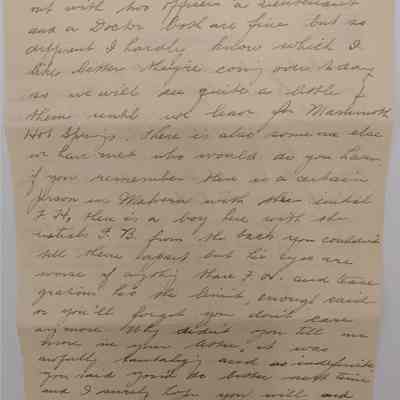 out with two officers a Lieutenant
and a Doctor both are fine but so
different I hardly know which I
like better they're coming over today
so we will see quite a little of
them until we leave for Mammoth
Hot Springs. There is also some one else
we have met who would do you harm
if you remember there is a certain
person in with the initial
F. H, there is a boy here with the
initials F. B. from the back you couldn't
tell them apart but his eyes are
worse if anything than F. H. and
gracious he's the limit, enough said
or you'll forget you don't care
anymore Why didn't you tell me
more in your letter, it was
awfully tantalizing and so indefinite
you said you'd do better next time
and I surely hope you will and